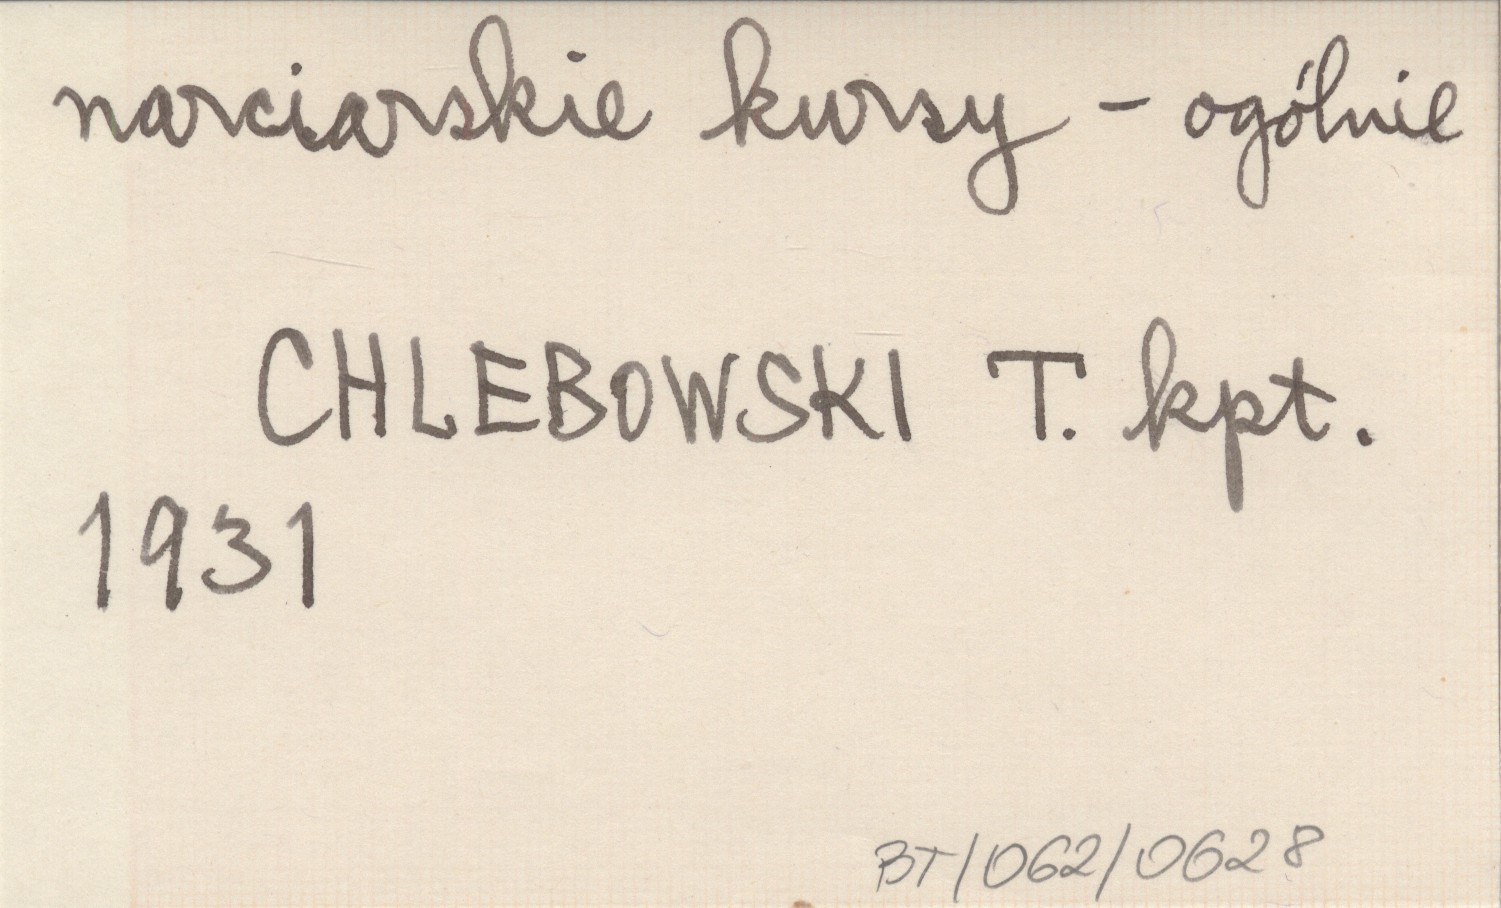 narciarskie kursy - ogólnie
CHLEBOWSKI T. kpt.
1931
BT/062/0628